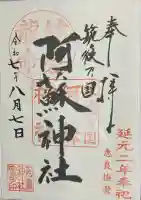 奉拝
筑後乃国
阿蘇神社
令和七年八月七日
延元二年奉祀